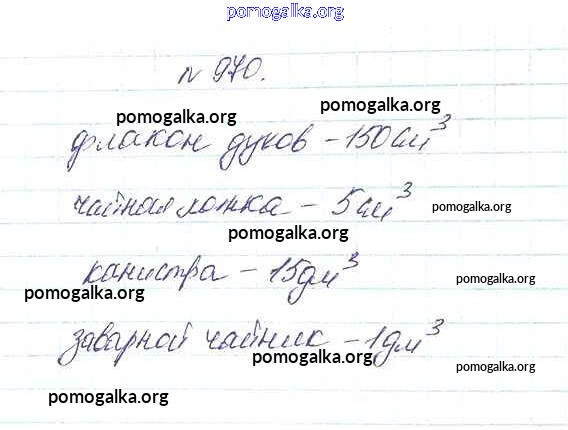 pomogalka.org
№ 970.
pomogalka.org pomogalka.org
флакон духов - 150 см³
чайная ложка - 5 см³ pomogalka.org
pomogalka.org
канистра - 15 дм³ pomogalka.org
pomogalka.org
заварной чайник - 1 дм³
pomogalka.org pomogalka.org
pomogalka.org